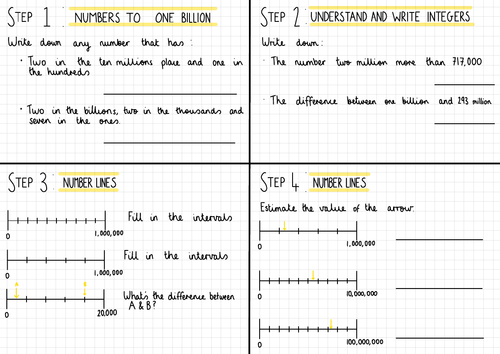 STEP 1 : NUMBERS TO ONE BILLION
Write down any number that has :
• Two in the ten millions place and one in
the hundreds
• Two in the billions, two in the thousands and
seven in the ones.
STEP 2 : UNDERSTAND AND WRITE INTEGERS
Write down :
• The number two million more than 717,000
• The difference between one billion and 293 million
STEP 3 : NUMBER LINES
Fill in the intervals
0 1,000,000
Fill in the intervals
0 1,000,000
What's the difference between
A & B?
0 20,000
STEP 4 : NUMBER LINES
Estimate the value of the arrow.
0 1,000,000
0 10,000,000
0 100,000,000